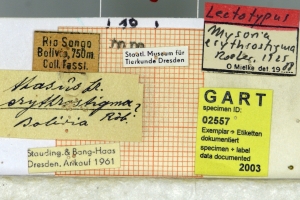 Rio Songo
Boliv., 750m.
Coll. Fassl.
Staatl. Museum für
Tierkunde Dresden
Lectotypus
Mysoria
erythrostigma
Röber, 1925
O Mielke det 19
erythrostigma?
Bolivia Röb.
Stauding. & Bang-Haas
Dresden, Ankauf 1961
GART
specimen ID:
02557
Exemplar + Etiketten
dokumentiert
specimen + label
data documented
2003